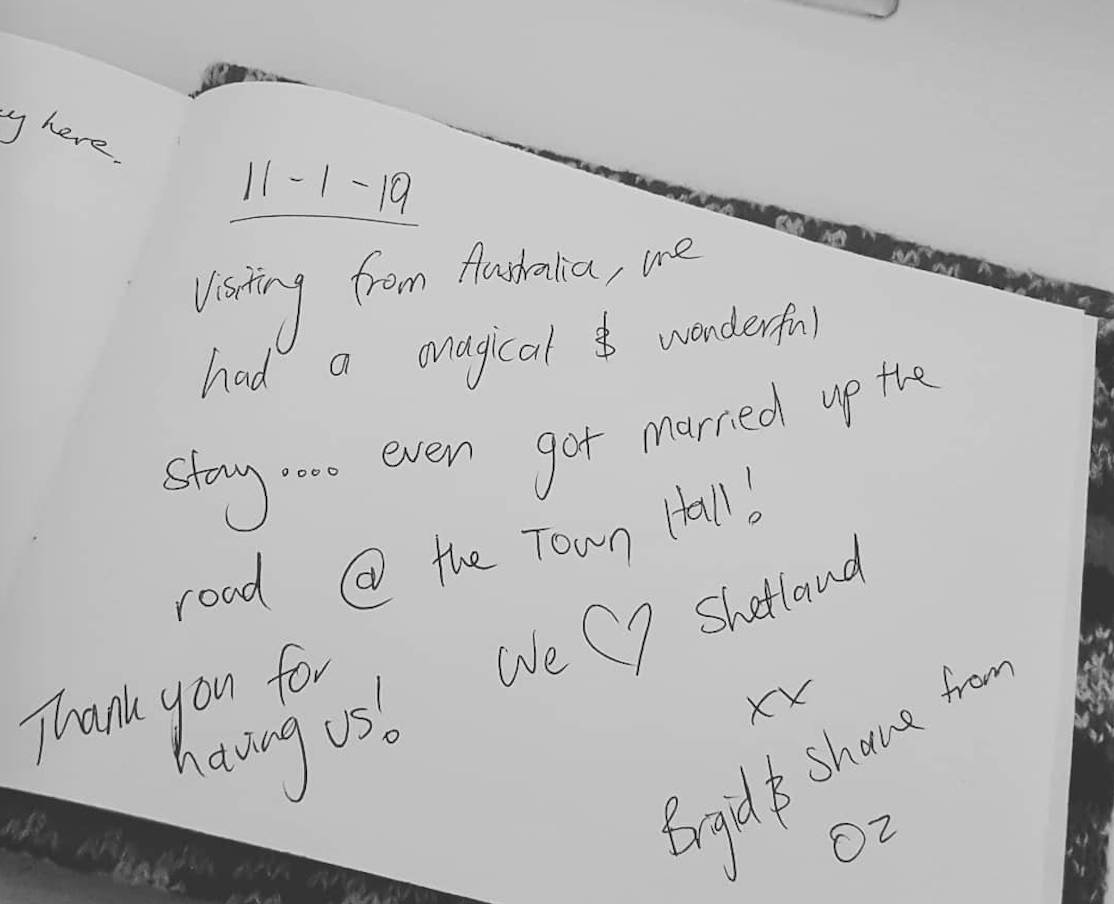 here.
11-1-19
Visiting from Australia, we
had a magical & wonderful
stay.... even got married up the
road @ the Town Hall!
We ♡ Shetland
Thank you for
having us!
xx
Brigid & Shane from
OZ